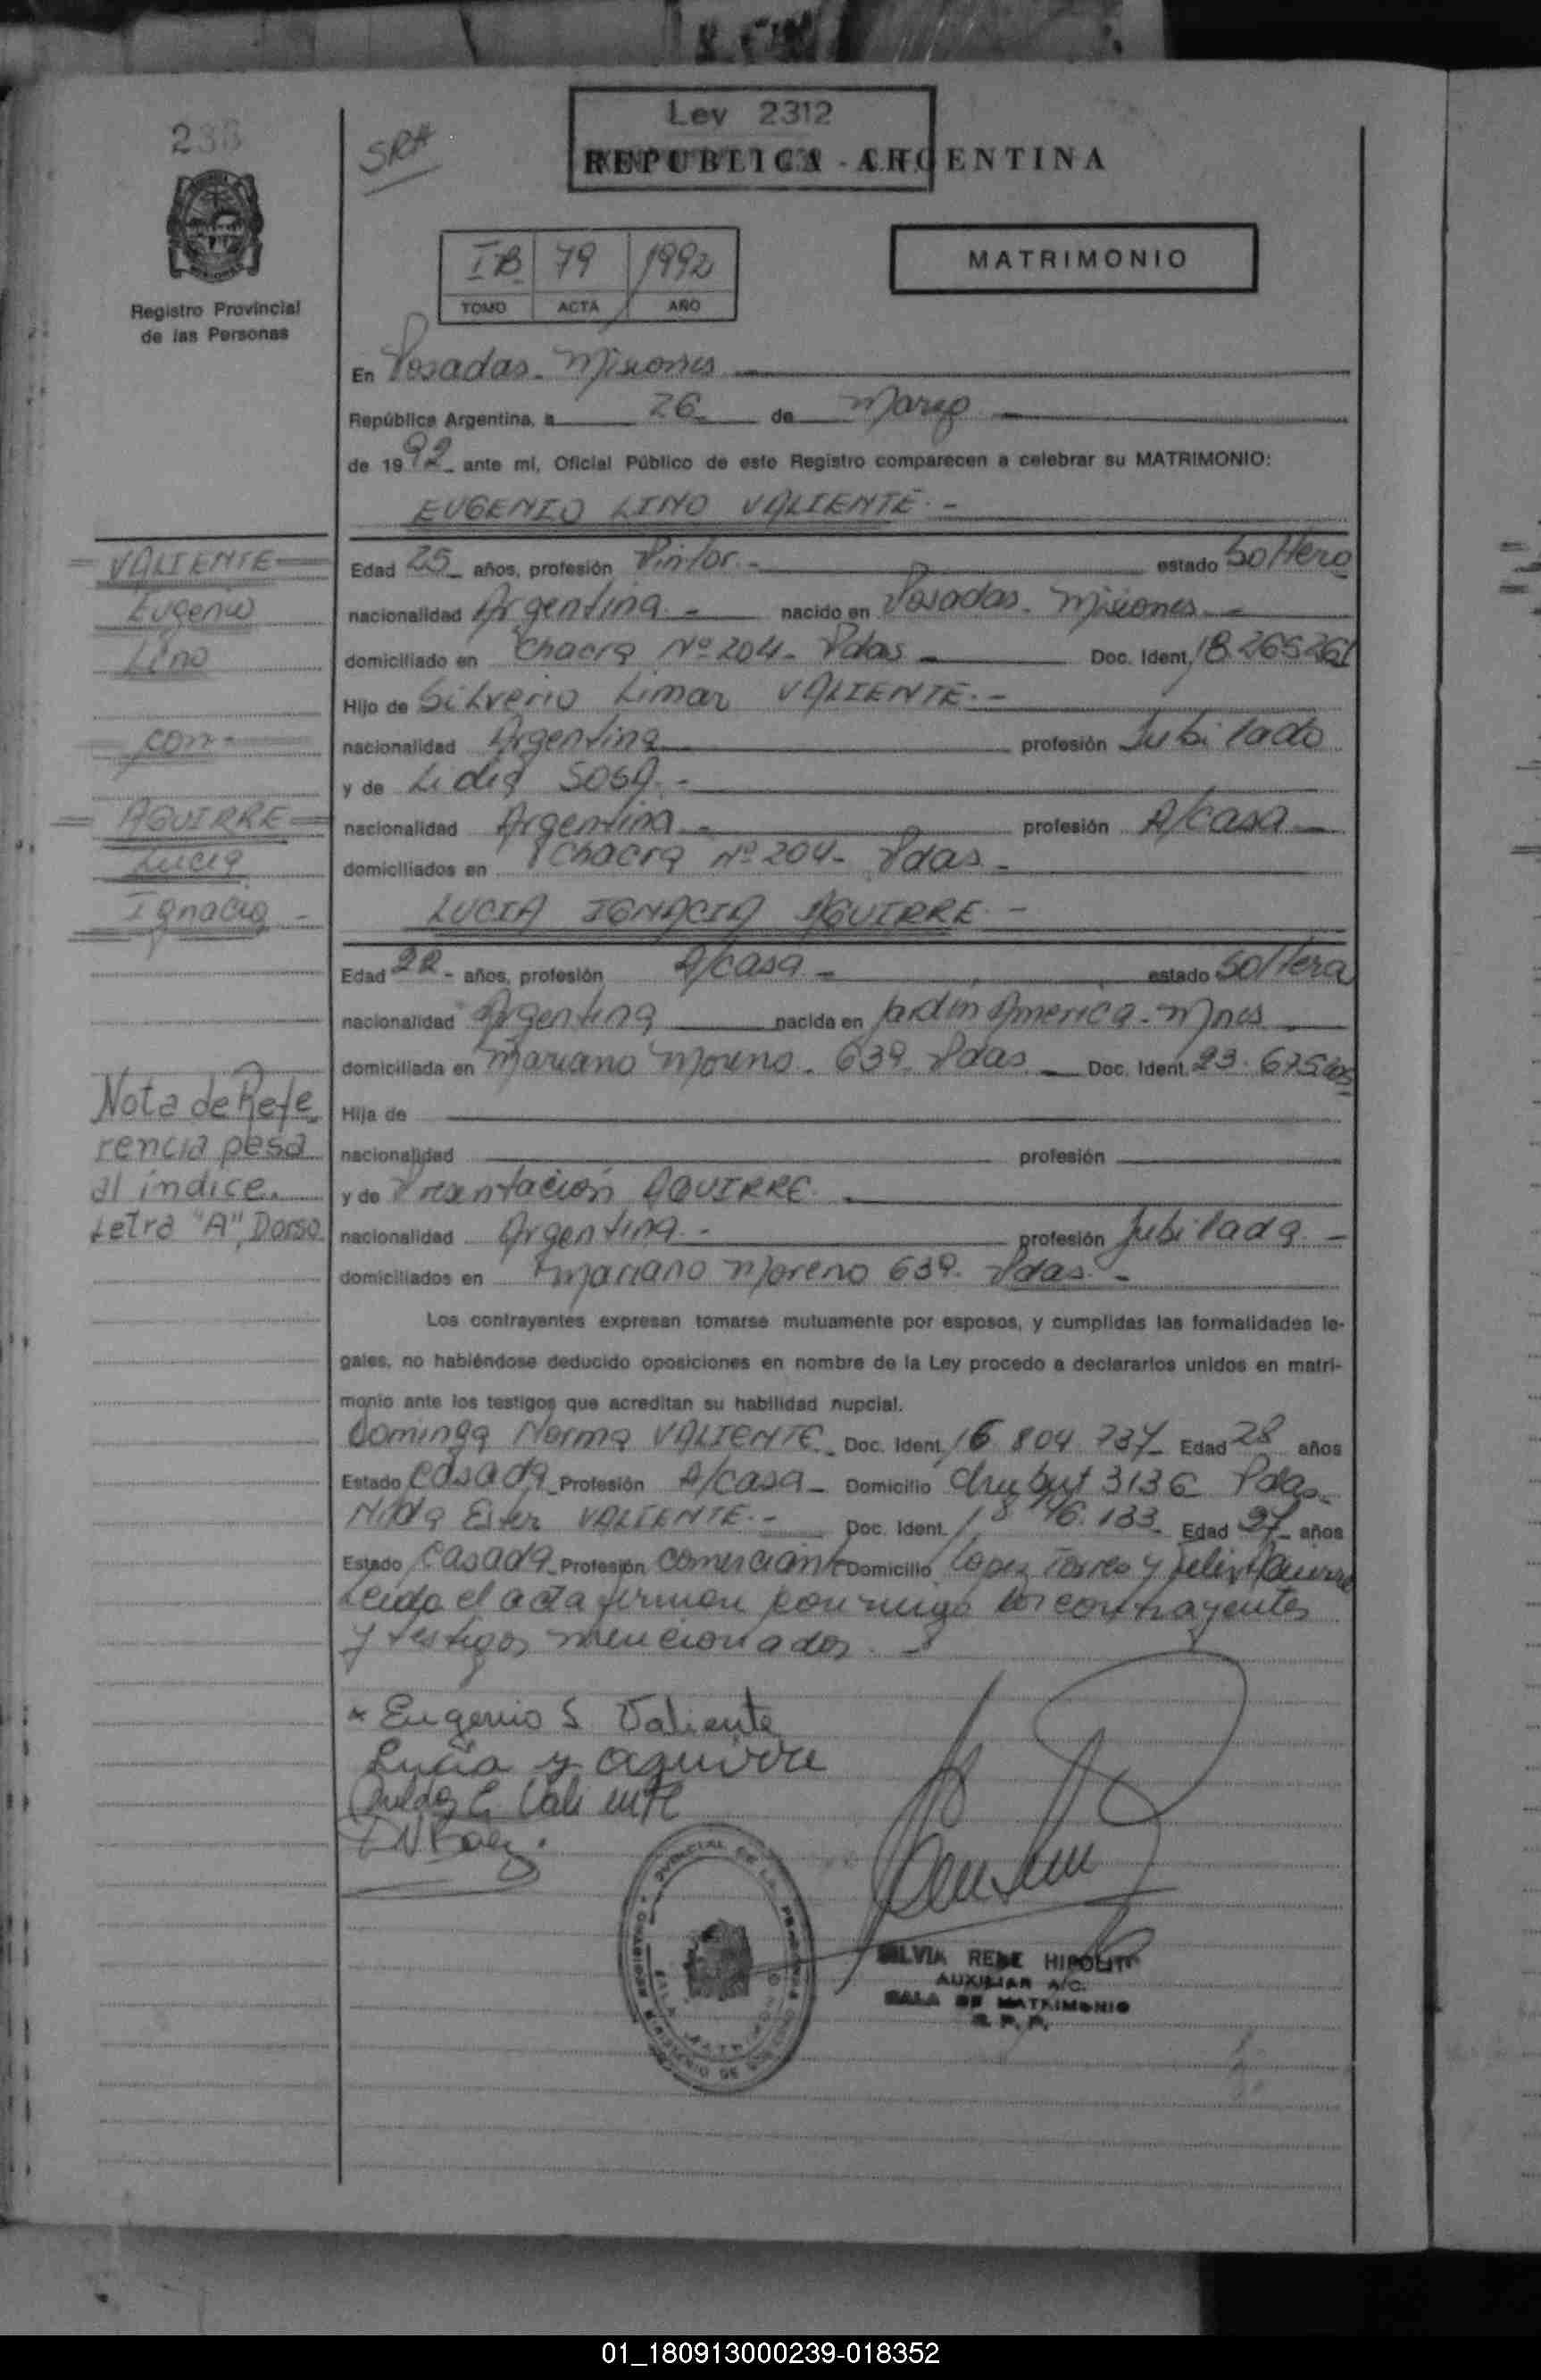 238
SRA
Ley 2312
REPUBLICA ARGENTINA
IB 79 1992
TOMO ACTA AÑO
MATRIMONIO
Registro Provincial
de las Personas
En Posadas - Misiones
República Argentina, a 26 de Marzo
de 1992 ante mi, Oficial Público de este Registro comparecen a celebrar su MATRIMONIO:
EUGENIO LINO VALIENTE.-
VALIENTE
Eugenio
Lino
con
AGUIRRE
Lucia
Ignacia
Edad 25 años, profesión Pintor.- estado Soltero
nacionalidad Argentina.- nacido en Posadas - Misiones.-
domiciliado en Chacra Nº 204 - Pdas Doc. Ident. 18.265.261
Hijo de Silverio Limar VALIENTE.-
nacionalidad Argentina profesión Jubilado
y de Lidia SOSA.-
nacionalidad Argentina.- profesión A/casa
domiciliados en Chacra Nº 204 - Pdas.-
LUCIA IGNACIA AGUIRRE.-
Edad 22 - años, profesión A/casa - estado Soltera
nacionalidad Argentina nacida en Jardín America - Mnes
domiciliada en Mariano Moreno - 639 - Pdas Doc. Ident. 23.675
Hija de
nacionalidad profesión
y de Presentación AGUIRRE.
nacionalidad Argentina.- profesión Jubilada.-
domiciliados en Mariano Moreno 639 - Pdas.-
Nota de Refe
rencia pasa
al indice.
Letra "A", Dorso
Los contrayentes expresan tomarse mutuamente por esposos, y cumplidas las formalidades le-
gales, no habiéndose deducido oposiciones en nombre de la Ley procedo a declararlos unidos en matri-
monio ante los testigos que acreditan su habilidad nupcial.
Dominga Norma VALIENTE Doc. Ident. 16.804.737 Edad 28 años
Estado Casada Profesión A/casa - Domicilio Chubut 3136 Pdas.
Nilda Ester VALIENTE.- Doc. Ident. Edad 27 años
Estado Casada Profesión Comerciante Domicilio Lopez Torres y
Leida el acta firman conmigo los contrayentes
y testigos mencionados.
x Eugenio L Valiente
Lucia y aguirre
Nilda E. Valiente
SILVIA RENE HIPOLITO
AUXILIAR A/C.
SALA DE MATRIMONIO
R. P. P.
01_180913000239-018352